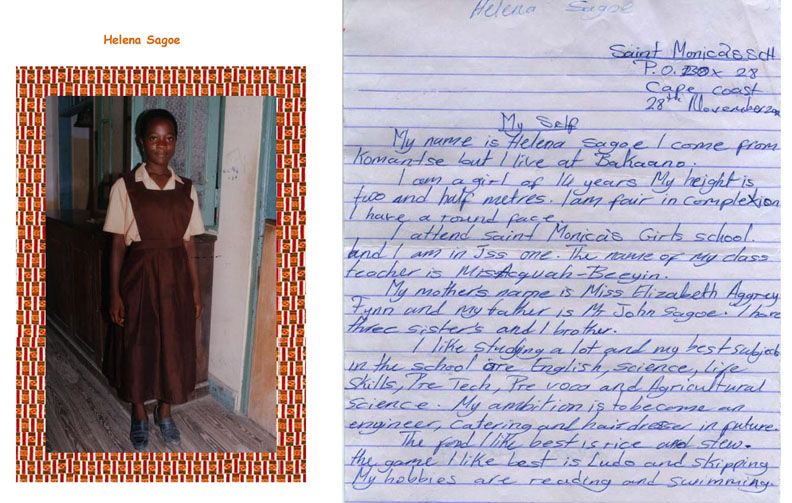 Helena Sagoe
Helena Sagoe
Saint Monica's SCH
P.O. Box 28
Cape Coast
28th November
My Self
My name is Helena Sagoe I come from
Komantse but I live at Bakaano.
I am a girl of 14 years My height is
two and half metres. I am fair in complexion
I have a round face.
I attend Saint Monica's Girls school.
and I am in Jss one. The name of my class
teacher is Miss Acquah-Beeyin.
My mother's name is Miss Elizabeth Aggrey
Fynn and my father is Mr John Sagoe. I have
three sister's and 1 brother.
I like studying a lot and my best subjects
in the school are English, science, life
skills, Pre Tech, Pre voca and Agricultural
science. My ambition is to become an
engineer, catering and hairdresser in puture.
The food I like best is rice and stew.
the game I like best is Ludo and skipping
My hobbies are reading and swimming.